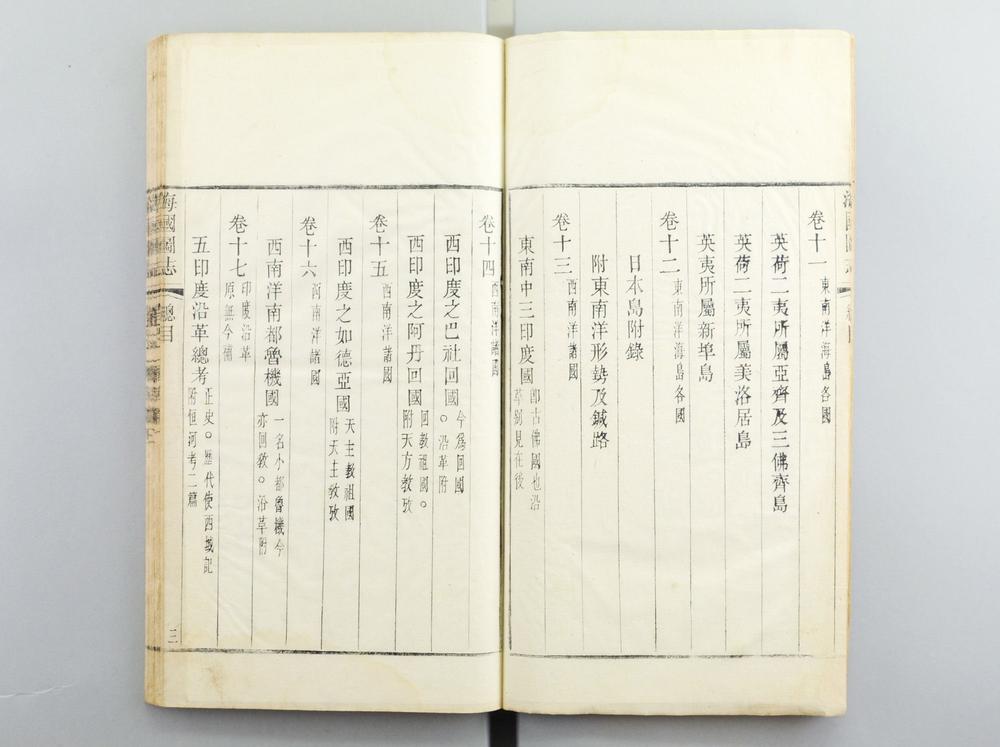 卷十一 東南洋海島各國
英荷二夷所屬亞齊及三佛齊島
英荷二夷所屬美洛居島
英夷所屬新埠島
卷十二 東南洋海島各國
日本島附錄
附東南洋形勢及鍼路
卷十三 西南洋諸國
東南中三印度國 即古佛國也沿
革別見在後
卷十四 西南洋諸國
西印度之巴社回國 今爲回國
。沿革附
西印度之阿丹回國 回教祖國。
附天方教攷
卷十五 西南洋諸國
西印度之如德亞國 天主教祖國
附天主教攷
卷十六 西南洋諸國
西南洋南都魯機國 一名小都魯機今
亦回教。沿革附
卷十七 印度沿革
原無今補
五印度沿革總考 正史。歷代使西域記
附恒河考二篇
海國圖志 總目
三